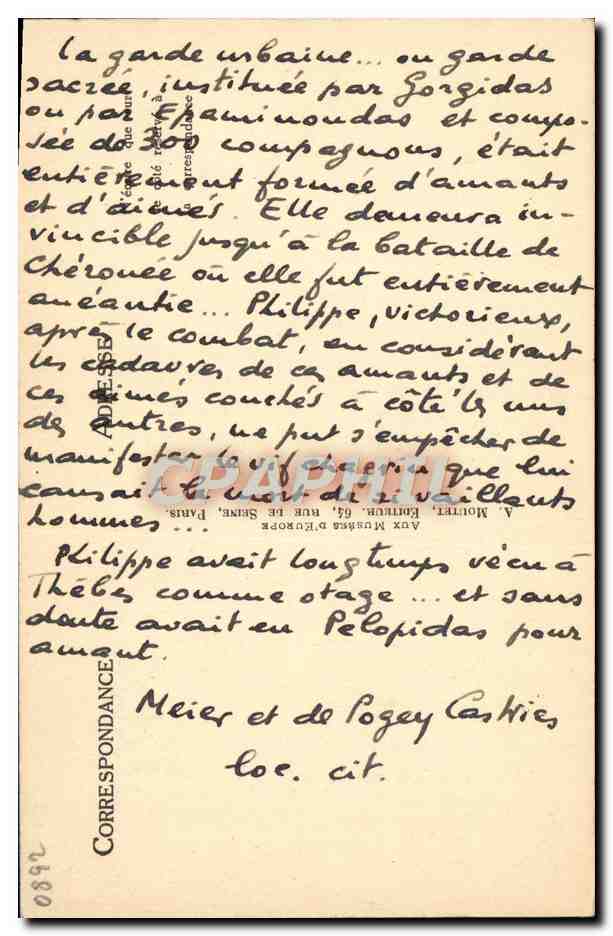 la garde urbaine... ou garde
sacrée, instituée par Gorgidas
ou par Epaminondas et compo-
sée de 300 compagnons, était
entièrement formée d'amants
et d'aimés. Elle demeura in-
vincible jusqu'à la bataille de
Chéronée où elle fut entièrement
anéantie... Philippe, victorieux,
après le combat, en considérant
les cadavres de ces amants et de
ces aimés couchés à côté les uns
des autres, ne put s'empêcher de
manifester le vif chagrin que lui
causait la mort de si vaillants
hommes...
Philippe avait longtemps vécu à
Thèbes comme otage... et sans
doute avait eu Pelopidas pour
amant.
Meier et de Pogey Castries
loc. cit.
CORRESPONDANCE
ADRESSE
le côté réservé à
correspondance
AUX MUSÉES D'EUROPE
A. MOUTET, EDITEUR. 64, RUE DE SEINE, PARIS.
CPAPHIL
0892